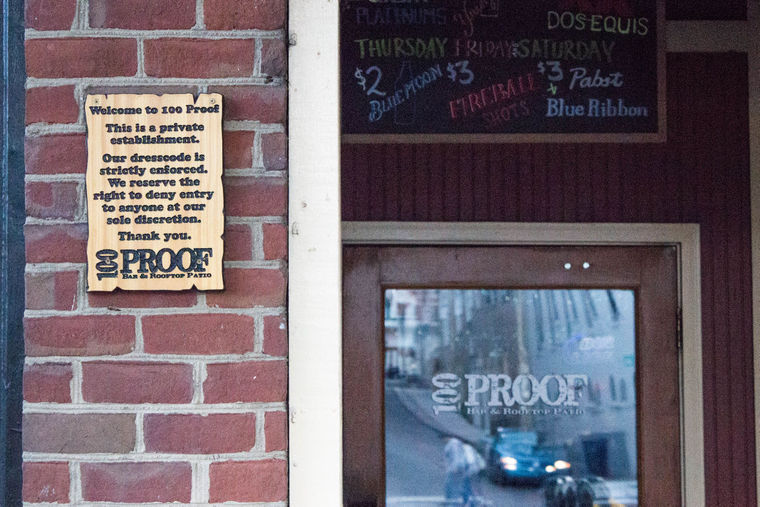 Welcome to 100 Proof
This is a private
establishment.
Our dresscode is
strictly enforced.
We reserve the
right to deny entry
to anyone at our
sole discretion.
Thank you.
100 PROOF
BAR & ROOFTOP PATIO
PLATINUMS
DOS EQUIS
THURSDAY FRIDAY & SATURDAY
$2 BLUE MOON $3 FIREBALL SHOTS $3 Pabst
Blue Ribbon
100 PROOF
BAR & ROOFTOP PATIO